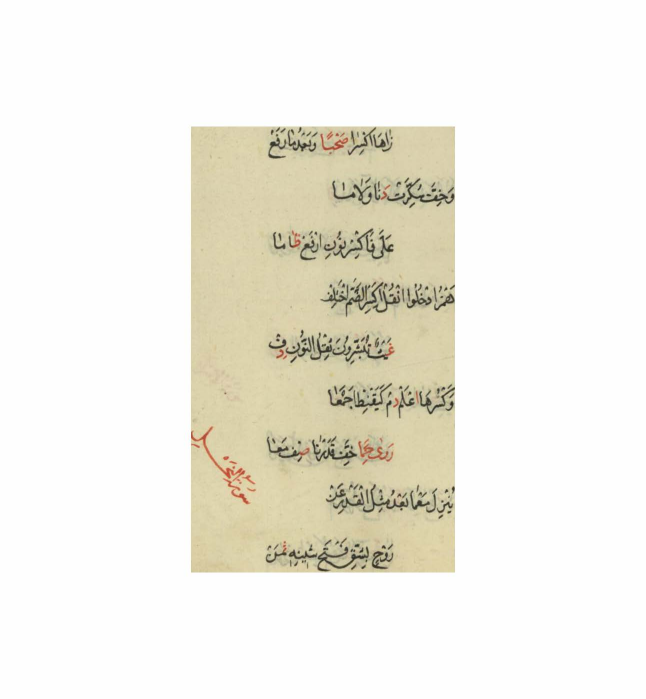 زاها اكسرا صحبا وبعد ما رفع
وخف سكرت دنا ولاما
على فاكسر نون ارفع ظاما
همزا دخلوا انقل اكسر الضم اختلف
غيث تبشرون ثقل النون دف
وكسرها اعلم دم كيقنط اجمعا
روى حما خف قدرنا صف معا
سورة النحل
ينزل مع ما بعد مثل القدر عن
روح بشق فتح شينه ثمن